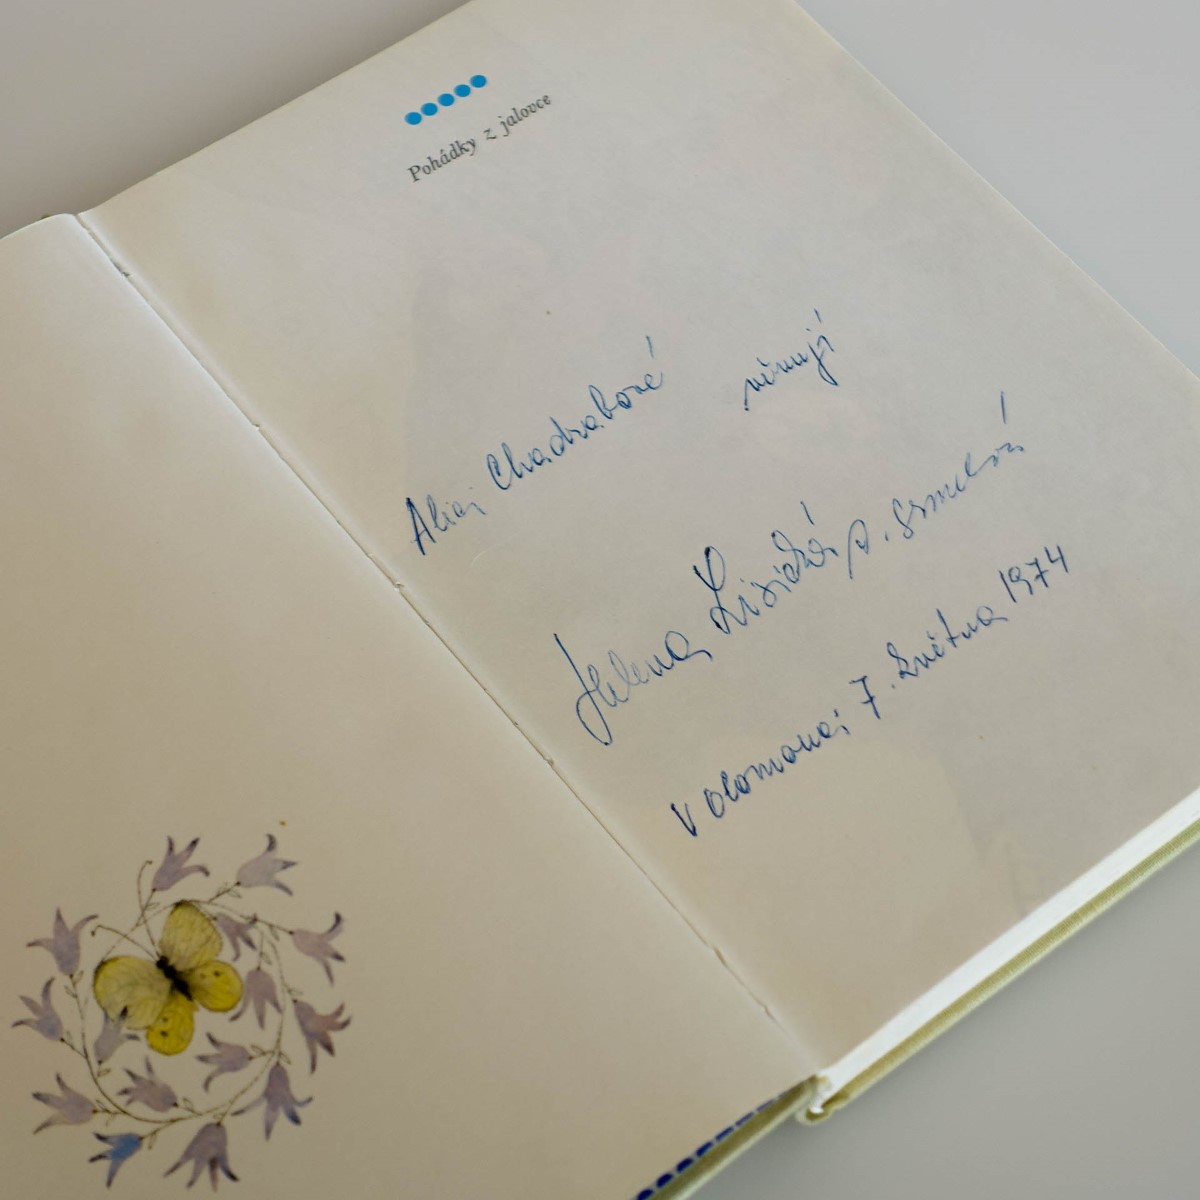 Pohádky z jalovce
Alici Chadrabové věnují
Helena Lisická p. Srmelová
V Olomouci 7. května 1974